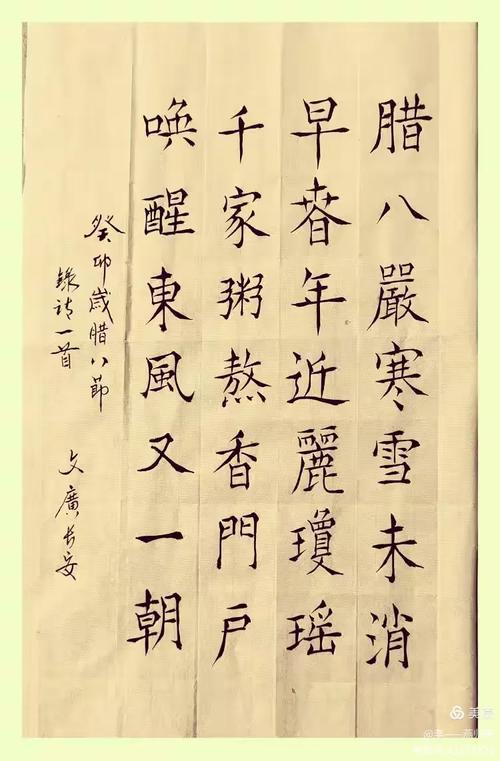 腊八嚴寒雪未消
早春年近麗瓊瑶
千家粥熬香門戶
喚醒東風又一朝
癸卯歲腊八節
錄詩一首
文廣長安
美篇